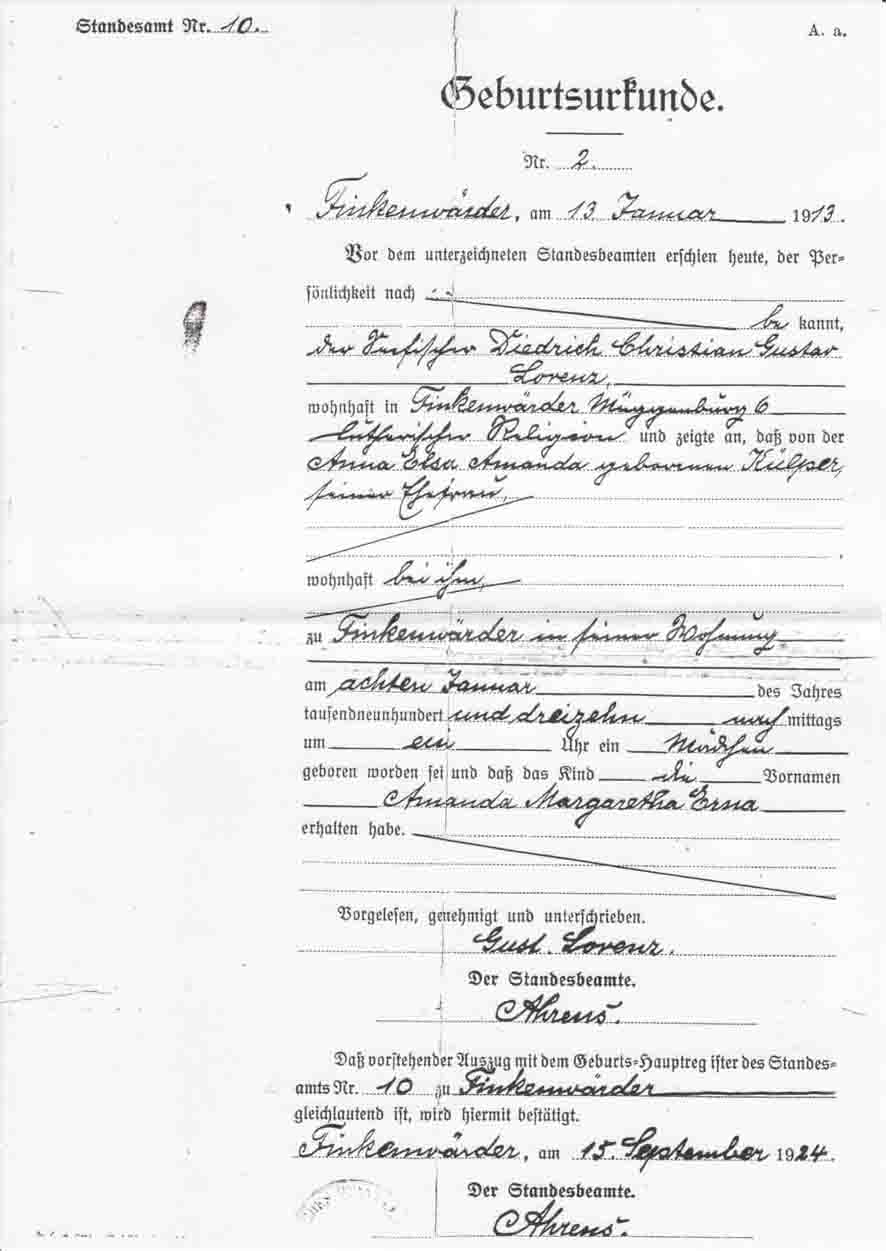 Standesamt Nr. 10.
A. a.
Geburtsurkunde.
Nr. 2.
Finkenwärder, am 13. Januar 1913.
Vor dem unterzeichneten Standesbeamten erschien heute, der Per=
sönlichkeit nach
be kannt,
der Seefischer Diedrich Christian Gustav
Lorenz,
wohnhaft in Finkenwärder Müggenburg 6
lutherischer Religion und zeigte an, daß von der
Anna Elsa Amanda geborenen Külper,
seiner Ehefrau,
wohnhaft bei ihm,
zu Finkenwärder in seiner Wohnung
am achten Januar des Jahres
tausendneunhundert und dreizehn nach mittags
um ein Uhr ein Mädchen
geboren worden sei und daß das Kind die Vornamen
Amanda Margaretha Erna
erhalten habe.
Vorgelesen, genehmigt und unterschrieben.
Gust. Lorenz.
Der Standesbeamte.
Ahrens.
Daß vorstehender Auszug mit dem Geburts=Hauptregister des Standes=
amts Nr. 10 zu Finkenwärder
gleichlautend ist, wird hiermit bestätigt.
Finkenwärder, am 15. September 1924.
Der Standesbeamte.
Ahrens.